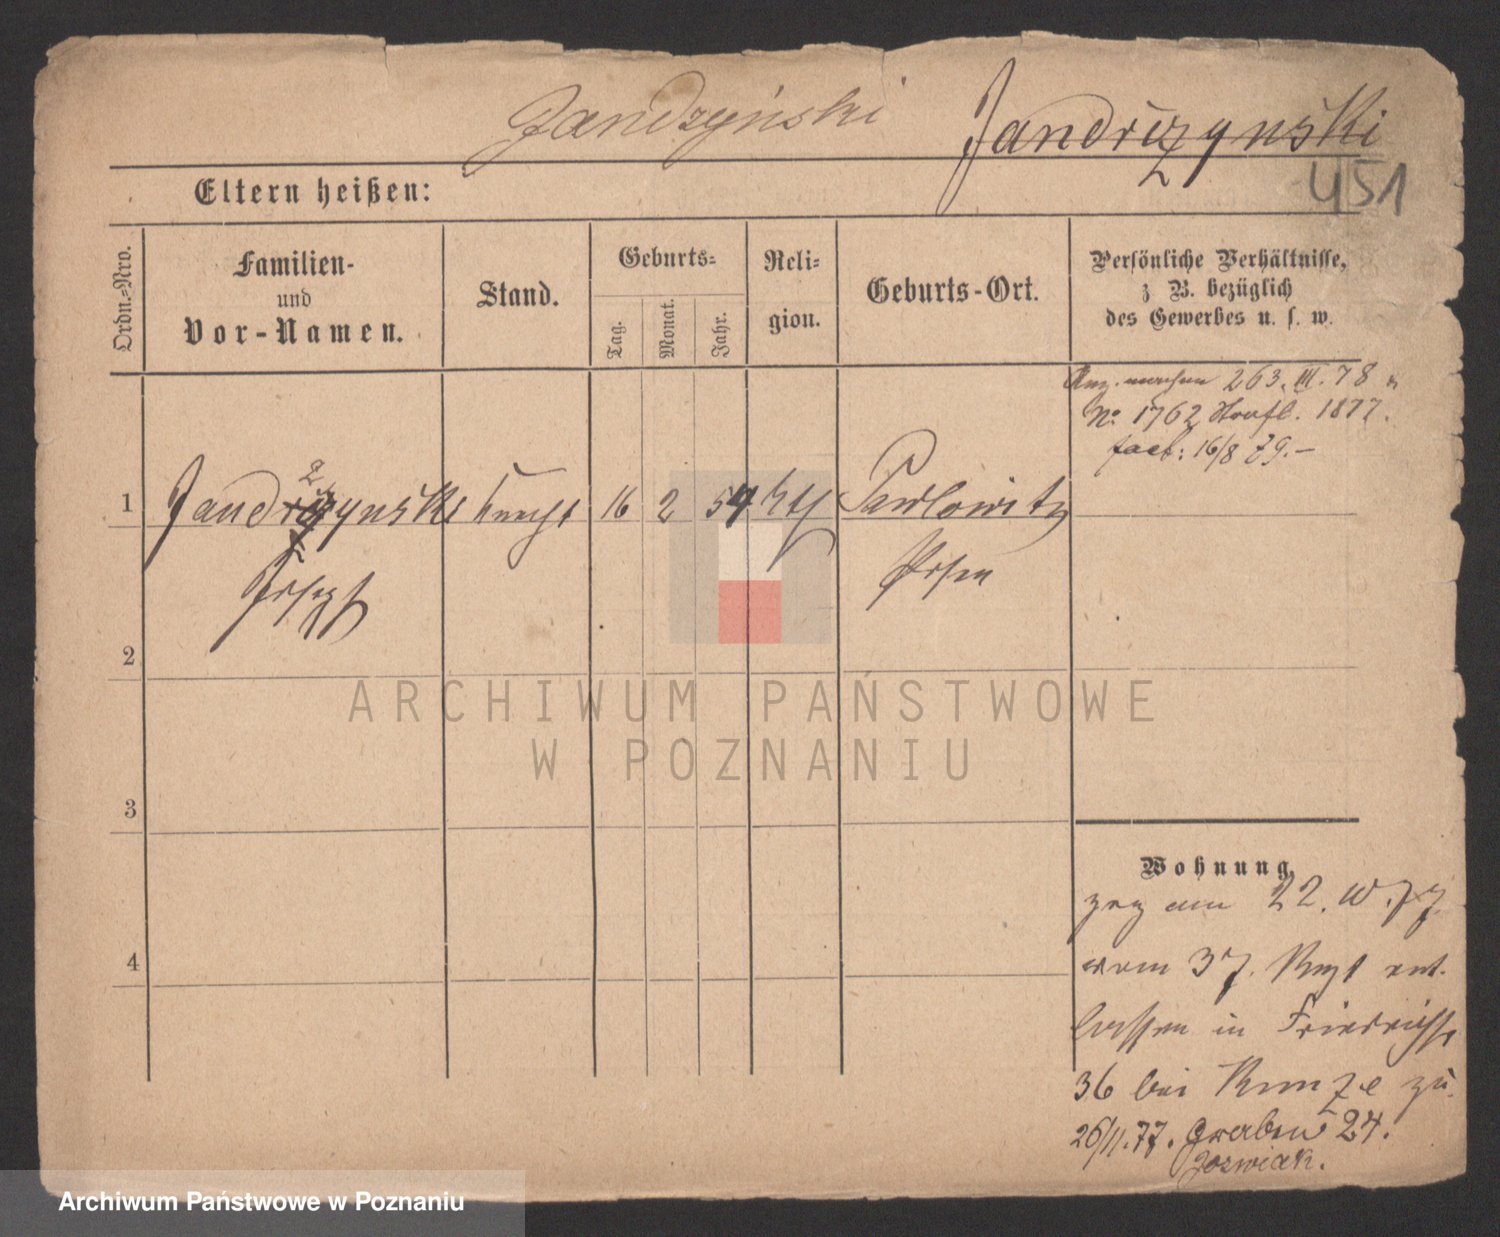 Jandzyński Jandrzynski
451
Eltern heißen:
Ordn.-Nro.
Familien-
und
Vor-Namen.
Stand.
Geburts-
Tag.
Monat.
Jahr.
Reli-
gion.
Geburts-Ort.
Persönliche Verhältnisse,
z B. bezüglich
des Gewerbes u. s. w.
263. III. 78
No 1762 1877.
16/8 79.–
1 Jandrzynski Knecht 16 2 54 kth Pawlowitz
Joseph Posen
2
3
4
Wohnung,
zog am 22. 77
vom 37. Regt ent-
lassen in Friedrichst
36 bei Kunze zu.
26/11.77. Graben 24.
Jozwiak.
ARCHIWUM PAŃSTWOWE
W POZNANIU
Archiwum Państwowe w Poznaniu